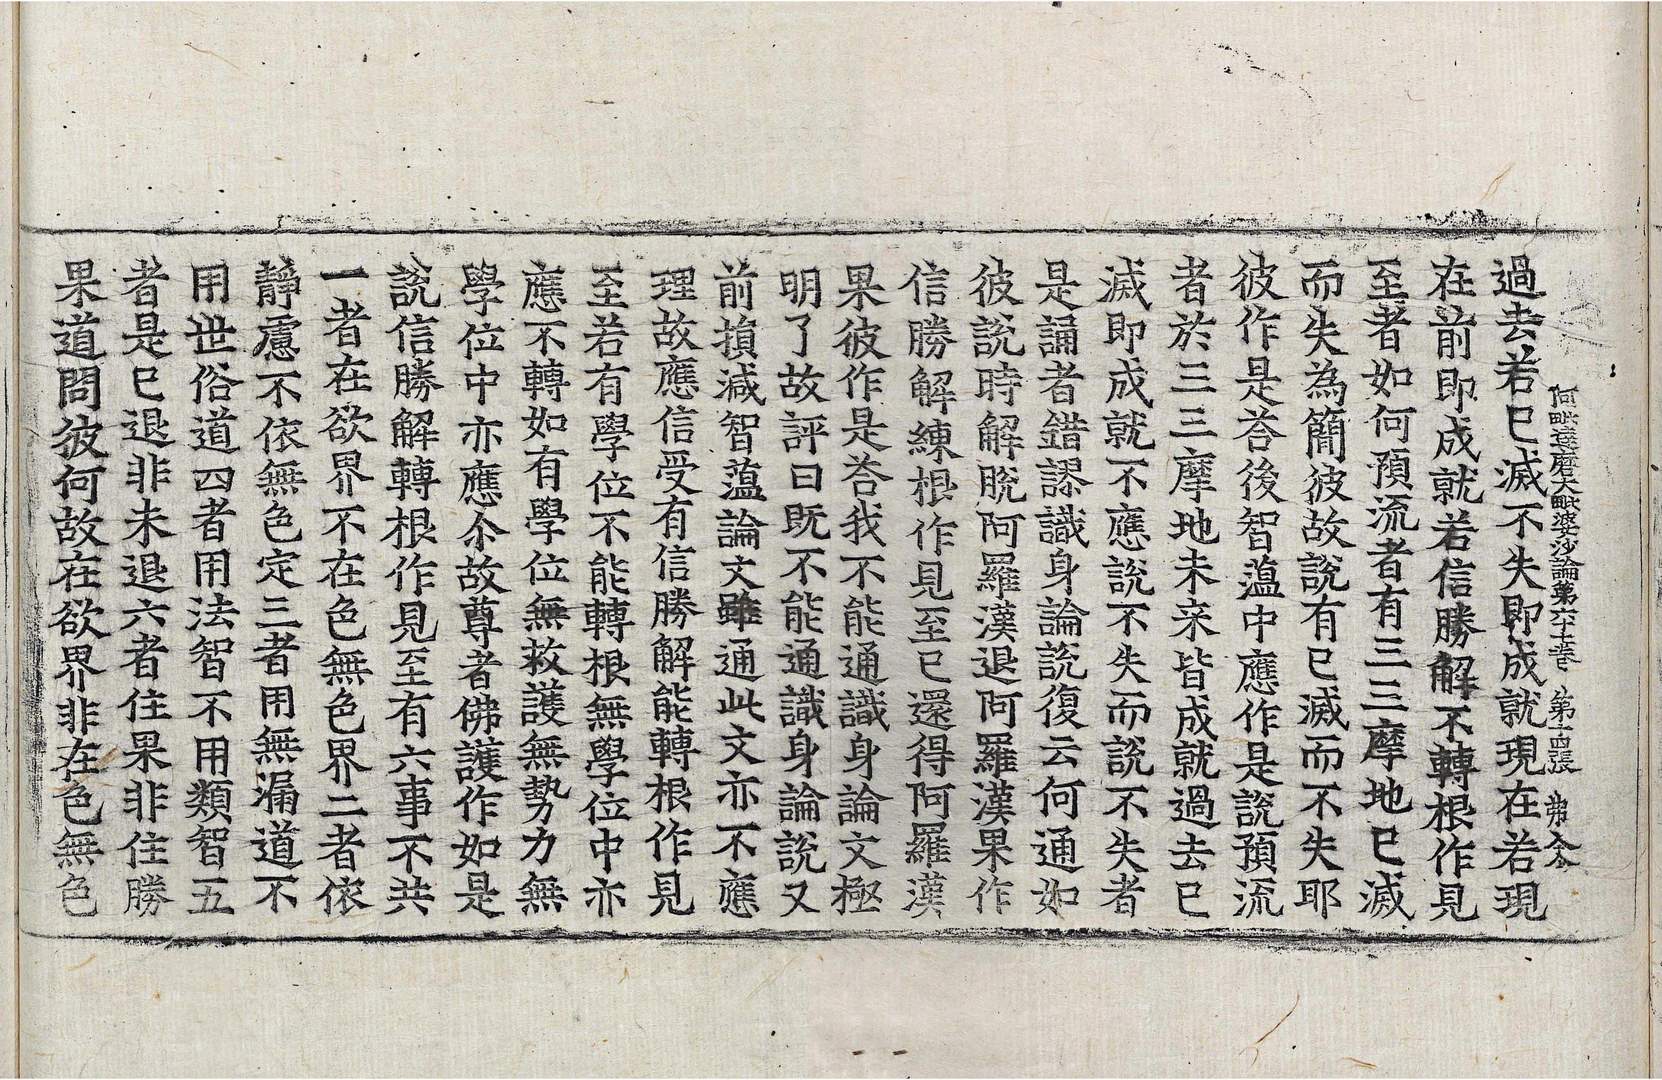 阿毗達磨大毗婆沙論第六十七卷 第十四張 弗
過去若已滅不失即成就現在若現
在前即成就若信勝解不轉根作見
至者如何預流者有三三摩地已滅
而失為簡彼故說有已滅而不失耶
彼作是荅後智蘊中應作是說預流
者於三三摩地未来皆成就過去已
滅即成就不應說不失而說不失者
是誦者錯謬識身論說復云何通如
彼說時解脫阿羅漢退阿羅漢果作
信勝解練根作見至已還得阿羅漢
果彼作是荅我不能通識身論文極
明了故評曰既不能通識身論說又
前損減智蘊論文雖通此文亦不應
理故應信受有信勝解能轉根作見
至若有學位不能轉根無學位中亦
應不轉如有學位無救護無勢力無
學位中亦應尒故尊者佛護作如是
說信勝解轉根作見至有六事不共
一者在欲界不在色無色界二者依
靜慮不依無色定三者用無漏道不
用世俗道四者用法智不用類智五
者是已退非未退六者住果非住勝
果道問彼何故在欲界非在色無色